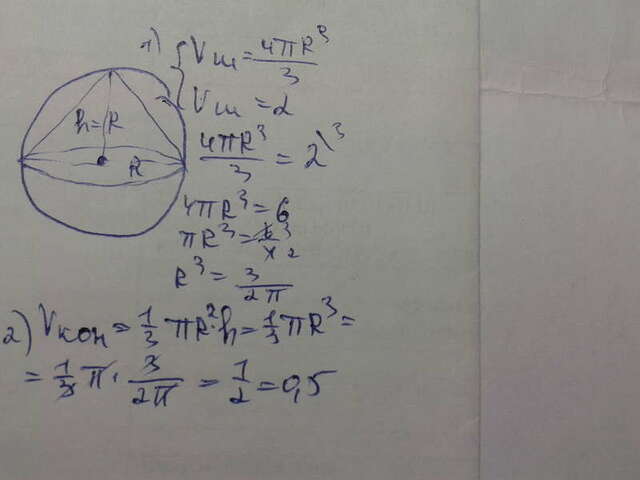 1) { Vш = 4πR³/3
Vш = 2
h=R
R
4πR³/3 = 2\³
4πR³ = 6
πR³ = 6³/4 2
R³ = 3/2π
2) Vкон = 1/3 πR²·h = 1/3 πR³ =
= 1/3 π · 3/2π = 1/2 = 0,5